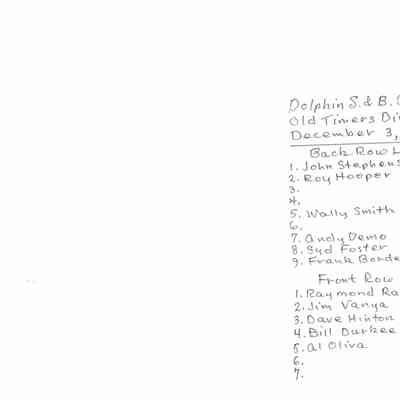 Dolphin S. & B. C
Old Timers Di
December 3,
Back Row L
1. John Stephens
2. Roy Hooper
3.
4.
5. Wally Smith
6.
7. Andy Demo
8. Syd Foster
9. Frank Borde
Front Row
1. Raymond Ra
2. Jim Vanya
3. Dave Hinton
4. Bill Durkee
5. Al Oliva
6.
7.